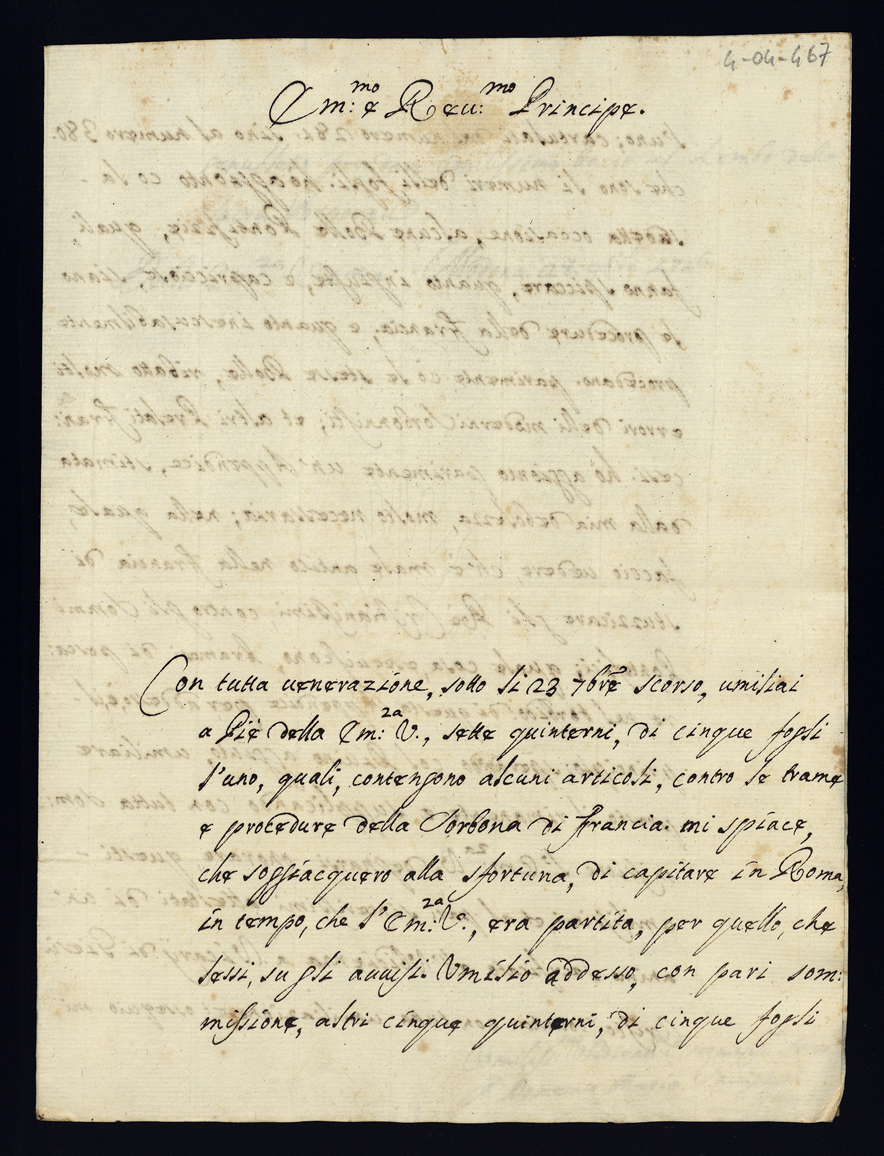 4-04-467
Em:mo e Reu:mo Principe.
Con tutta uenerazione, sotto li 23 7bre scorso, umiliai
a Piè della Em:za V., sette quinterni, di cinque fogli
l'uno, quali, contengono alcuni articoli, contro le trame
e procedure della Sorbona di Francia. mi spiace,
che soggiacquero alla sfortuna, di capitare in Roma,
in tempo, che l'Em:za V., era partita, per quello, che
lessi, su gli auuisi. Vmilio addesso, con pari som:
missione, altri cinque quinterni, di cinque fogli